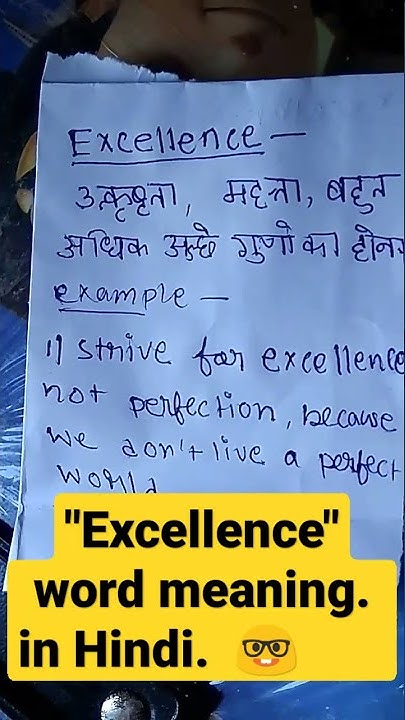 Excellence –
उत्कृष्टता, महत्ता, बहुत
अधिक अच्छे गुणों का होना
example –
1) strive for excellence
not perfection, because
we don't live a perfect
world
"Excellence"
word meaning.
in Hindi. 🤓